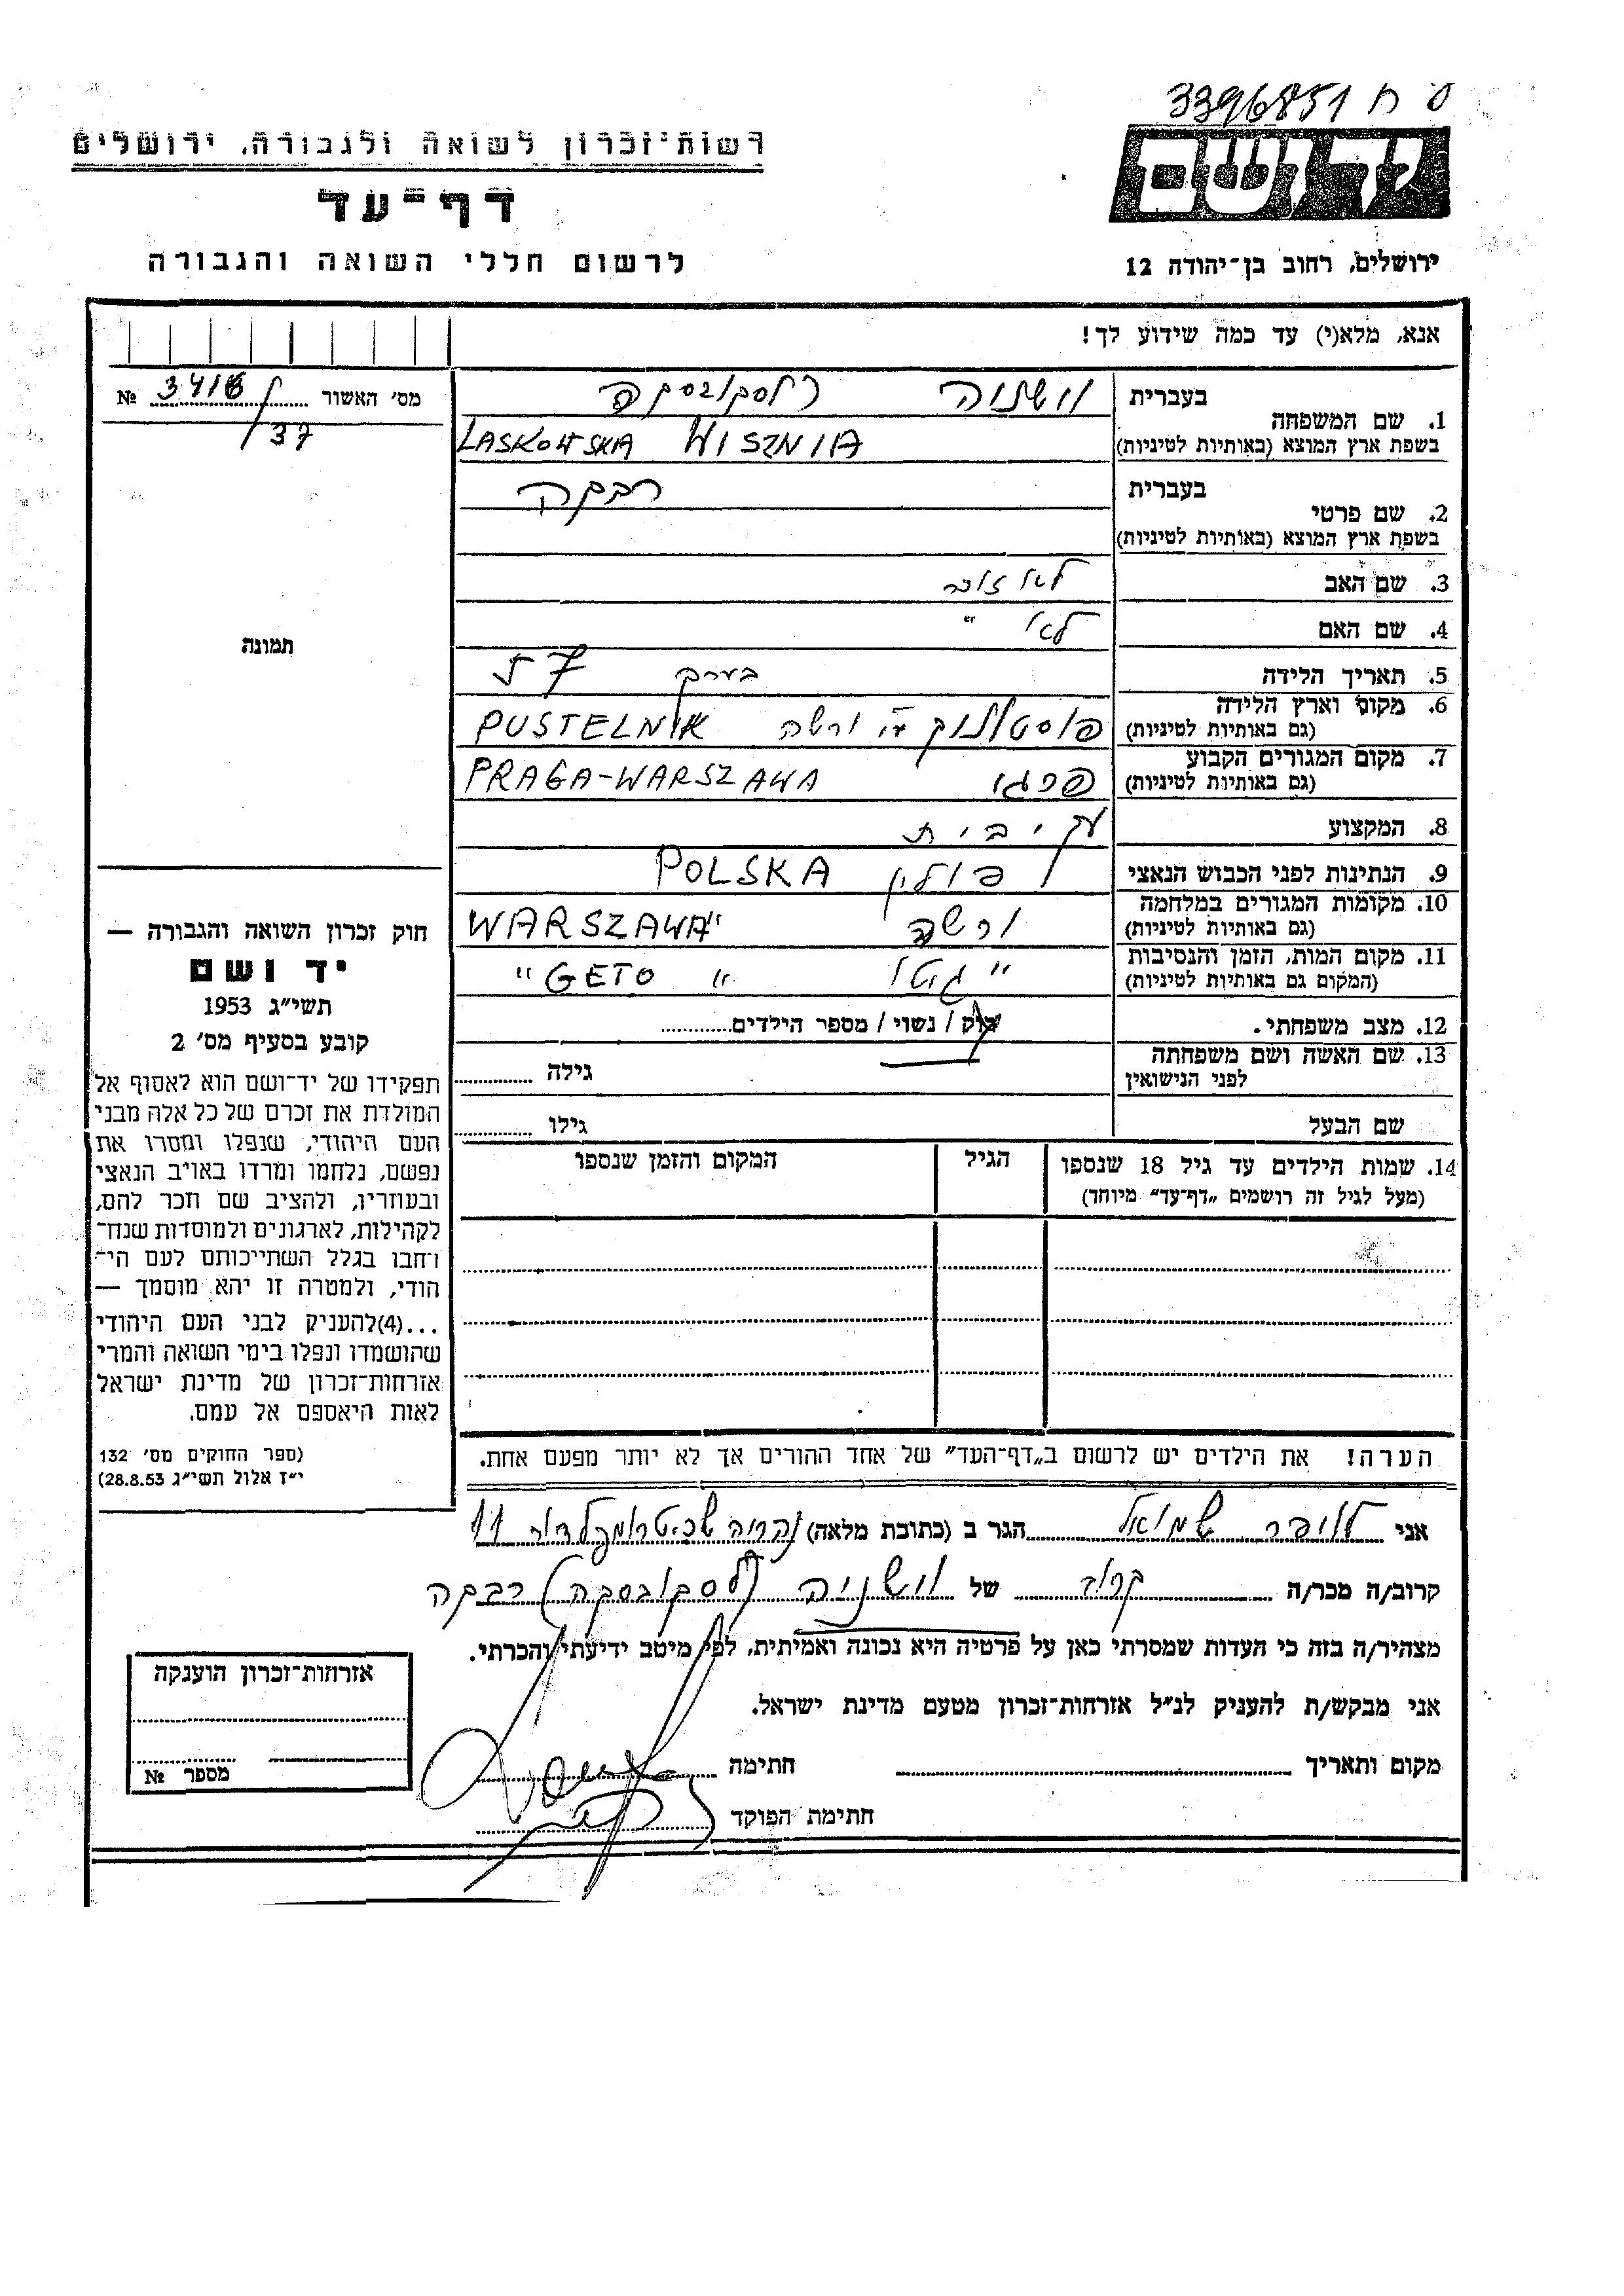 ס ח 3396851
יד ושם
רשות־זכרון לשואה ולגבורה, ירושלים
דף־עד
לרשום חללי השואה והגבורה
ירושלים, רחוב בן־יהודה 12
אנא, מלא(י) עד כמה שידוע לך!
מס׳ האשור № 3418/
37
תמונה
1. שם המשפחה בעברית וושניה לסקובסקה
בשפת ארץ המוצא (באותיות לטיניות) LASKOWSKA WISZNIA
2. שם פרטי בעברית רבקה
בשפת ארץ המוצא (באותיות לטיניות)
3. שם האב לא זוכר
4. שם האם לא "
5. תאריך הלידה בערך 57
6. מקום וארץ הלידה PUSTELNIK ורשה
(גם באותיות לטיניות)
7. מקום המגורים הקבוע פרגו PRAGA-WARSZAWA
(גם באותיות לטיניות)
8. המקצוע עק. בית
9. הנתינות לפני הכבוש הנאצי פולין POLSKA
10. מקומות המגורים במלחמה ורשה WARSZAWA"
(גם באותיות לטיניות)
11. מקום המות, הזמן והנסיבות "גיטו" "GETO"
(המקום גם באותיות לטיניות)
12. מצב משפחתי. רוק / נשוי / מספר הילדים
13. שם האשה ושם משפחתה
לפני הנישואין גילה
שם הבעל גילו
14. שמות הילדים עד גיל 18 שנספו הגיל המקום והזמן שנספו
(מעל לגיל זה רושמים „דף־עד" מיוחד)
הערה! את הילדים יש לרשום ב„דף־העד" של אחד ההורים אך לא יותר מפעם אחת.
חוק זכרון השואה והגבורה —
יד ושם
תשי״ג 1953
קובע בסעיף מס׳ 2
תפקידו של יד־ושם הוא לאסוף אל
המולדת את זכרם של כל אלה מבני
העם היהודי, שנפלו ומסרו את
נפשם, נלחמו ומרדו באויב הנאצי
ובעוזריו, ולהציב שם וזכר להם,
לקהילות, לארגונים ולמוסדות שנח־
רחבו בגלל השתייכותם לעם הי־
הודי, ולמטרה זו יהא מוסמך —
...(4)להעניק לבני העם היהודי
שהושמדו ונפלו בימי השואה והמרי
אזרחות־זכרון של מדינת ישראל
לאות היאספם אל עמם.
(ספר החוקים מס׳ 132
י״ז אלול תשי״ג 28.8.53)
אני שמואל הגר ב (כתובת מלאה) 11
קרוב/ה מכר/ה קרוב של וושניה (לסקובסקה) רבקה
מצהיר/ה בזה כי העדות שמסרתי כאן על פרטיה היא נכונה ואמיתית, לפי מיטב ידיעתי והכרתי.
אני מבקש/ת להעניק לנ״ל אזרחות־זכרון מטעם מדינת ישראל.
מקום ותאריך חתימה
חתימת הפוקד
אזרחות־זכרון הוענקה
מספר №